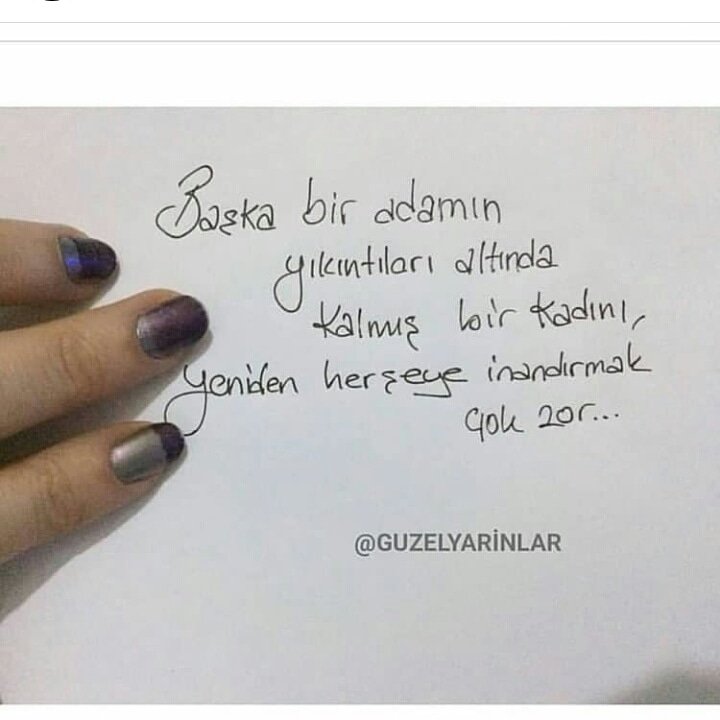 Başka bir adamın
yıkıntıları altında
kalmış bir kadını,
yeniden herşeye inandırmak
çok zor...
@GUZELYARİNLAR